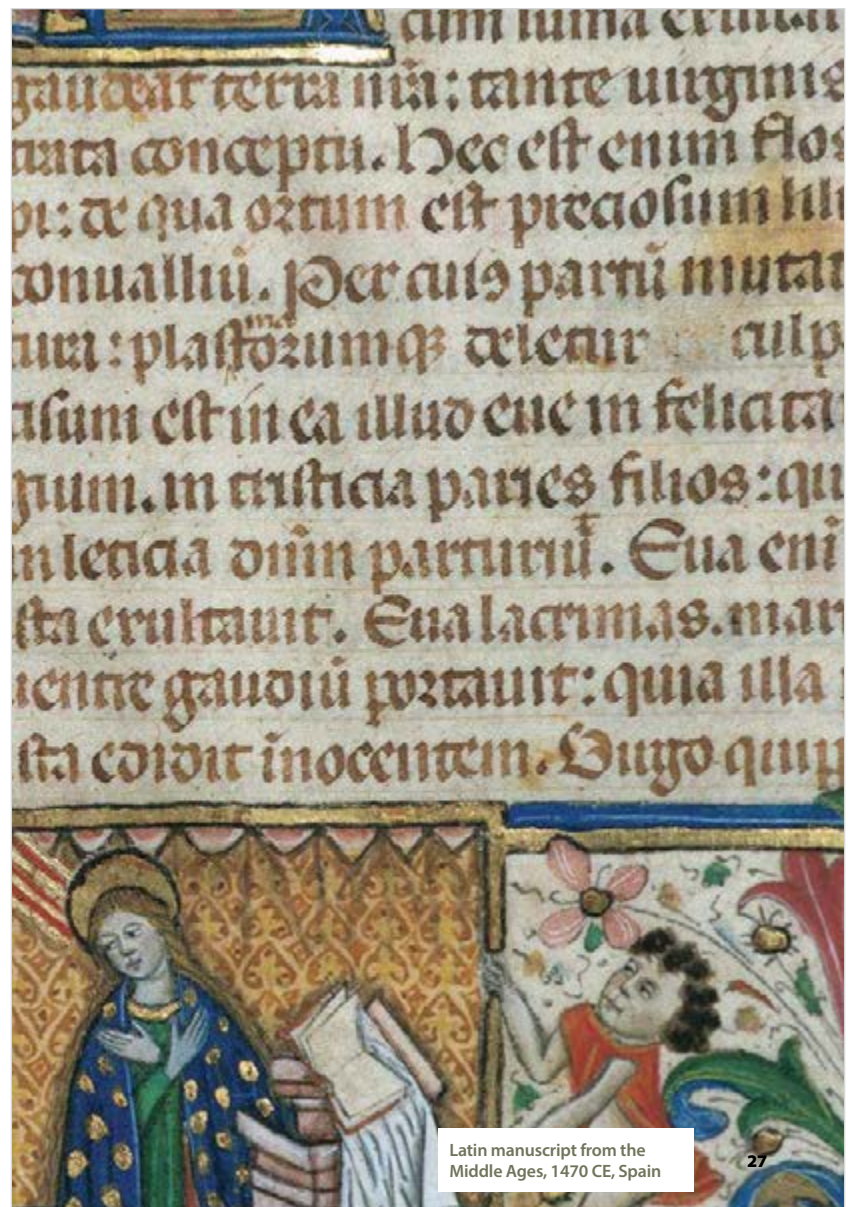 cum luma
gaudeat terra nr̃a: tante uirginis
trata conceptu. Hec est enim flos
pi: de qua ortum est preciosum lili
conualliũ. Per cuiꝰ partũ mutat
tura: plastorumqꝫ deletur culp
est in ea illud eue in felicita
gium. in tristicia paries filios: qu
in leticia dñm parturiũ. Eua enĩ
sta exultauit. Eua lacrimas. mar
uentre gaudiũ portauit: quia illa
sta edidit ĩnocentem. Uugo quip
Latin manuscript from the
Middle Ages, 1470 CE, Spain
27